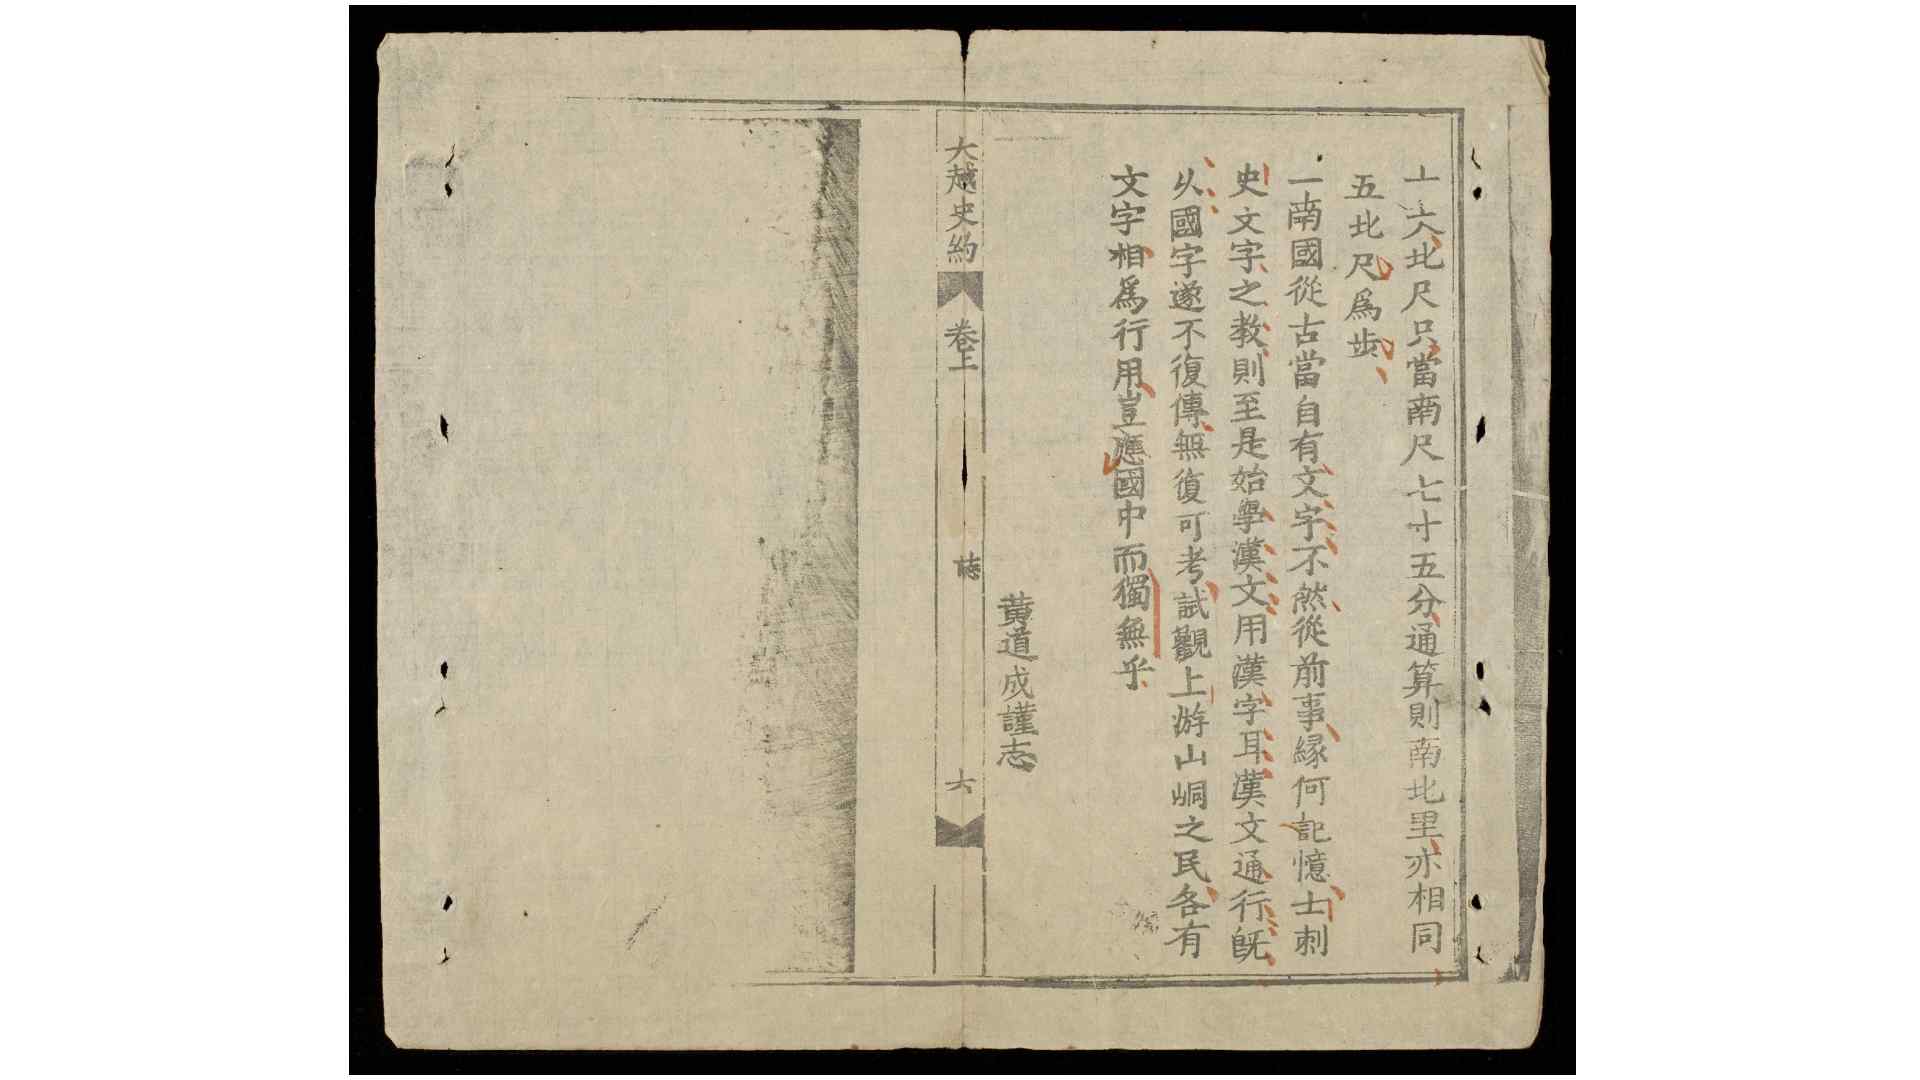 六北尺只當南尺七寸五分通算則南北里亦相同
五北尺爲步
一南國從古當自有文字不然從前事緣何記憶士刺
史文字之教則至是始學漢文用漢字耳漢文通行旣
以國字遂不復傳無復可考試觀上游山峒之民各有
文字相爲行用豈應國中而獨無乎
黃道成謹志
大越史約 卷上 誌 六